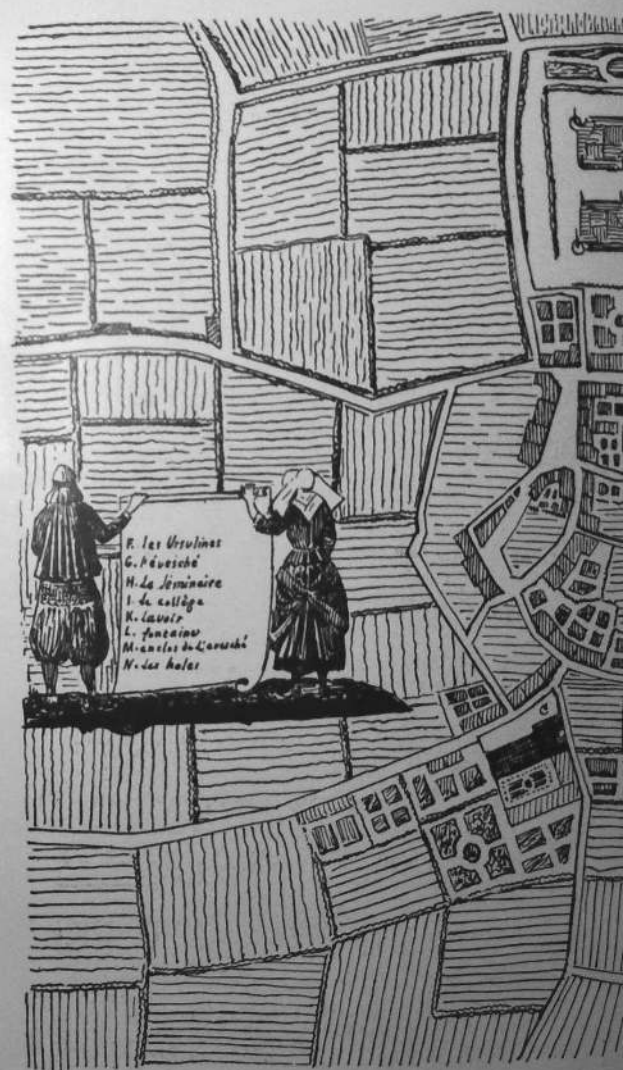 F. les Ursulines
G. l'évesché
H. Le Séminaire
I. Le collège
K. Lavoir
L. fontaines
M. enclos de L'evesché
N. Les hales
C